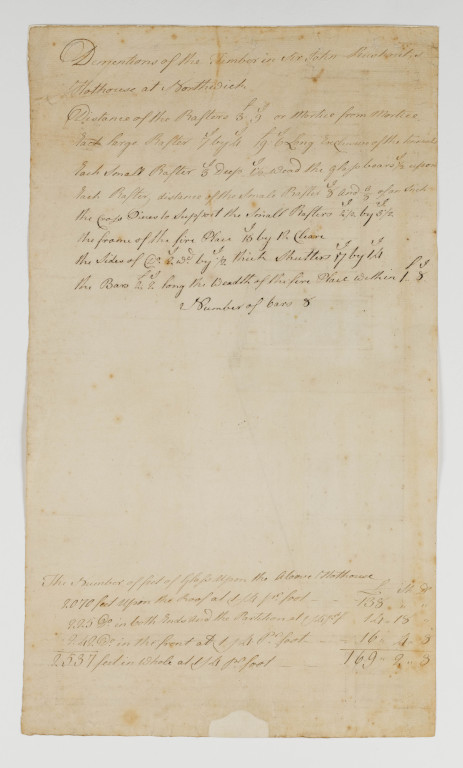 Dimentions of the Timber in Sir John
Hothouse at Northwick.
Distance of the Rafters 3 9 or Mortice from Mortice
Each large Rafter 7 by 4 19 6 Long Exclusive of the
Each Small Rafter 6 Deep the glass bears upon
Each Rafter, distance of the Small Rafter 8 and of an Inch
the Cross Pieces to Support the Small Rafters 2½ by 3½
the frame of the fire Place 18 by 14 Cleare
the Sides of Do by 1½ thick Shutters 17 by 14
the Bars 2 2 long the Weadth of the fire Place within 1 8
Number of bars 8
The Number of feet of Glass Upon the Above Hothouse
2070 feet Upon the Roof at 1/4 pr foot 138
225 Do in both Ends and the Partition at 14 18
242 Do in the front at 1/4 pr foot 16 4 8
2537 foot in Whole at 1/4 pr foot 169 2 8